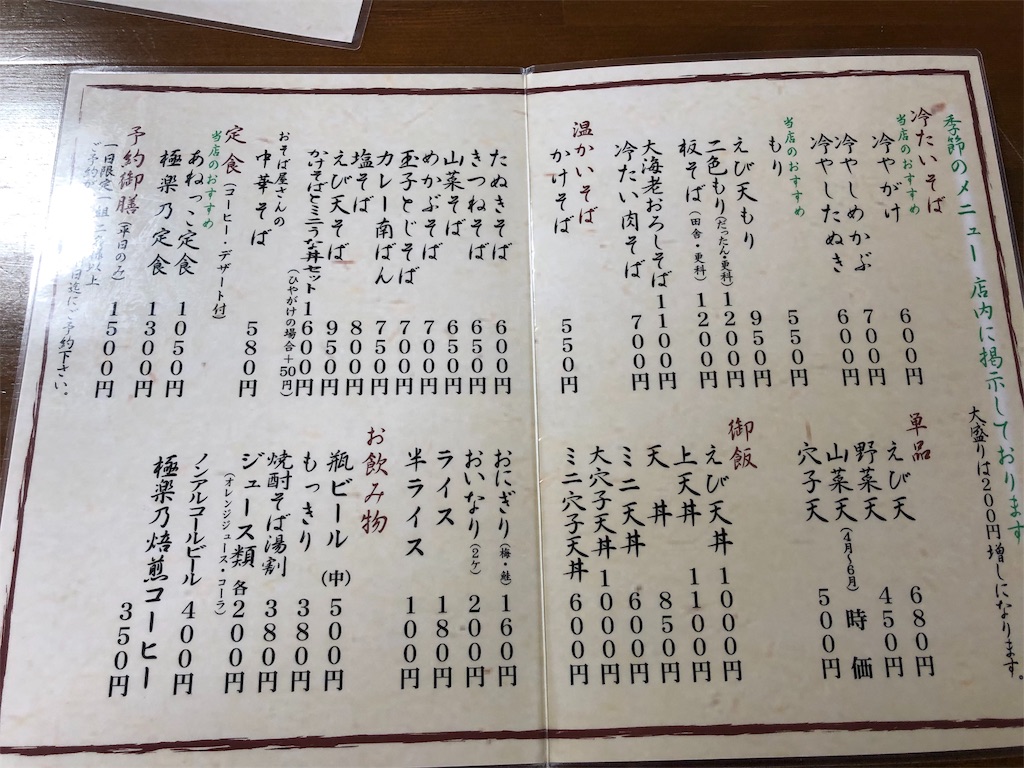 季節のメニュー 店内に掲示しております
大盛りは200円増しになります。
冷たいそば
当店のおすすめ
冷やがけ 600円
冷やしめかぶ 700円
冷やしたぬき 600円
当店のおすすめ
もり 550円
えび天もり 950円
二色もり(だったん・更科) 1200円
板そば(田舎・更科) 1200円
大海老おろしそば 1100円
冷たい肉そば 700円
温かいそば
かけそば 550円
単品
えび天 680円
野菜天 450円
山菜天(4月〜6月) 時価
穴子天 500円
御飯
えび天丼 1000円
上天丼 1100円
天丼 850円
ミニ天丼 600円
大穴子天丼 1000円
ミニ穴子天丼 600円
たぬきそば 600円
きつねそば 650円
山菜そば 650円
めかぶそば 700円
玉子とじそば 700円
カレー南ばん 750円
塩そば 800円
えび天そば 950円
かけそばとミニうな丼セット 1600円
(ひやがけの場合+50円)
おそば屋さんの
中華そば 580円
定食(コーヒー・デザート付)
当店のおすすめ
あねっこ定食 1050円
極楽乃定食 1300円
予約御膳(平日のみ) 1500円
一日限定一組
ご予約下さい。
おにぎり(梅・鮭) 160円
おいなり(2ケ) 200円
ライス 180円
半ライス 100円
お飲み物
瓶ビール(中) 500円
もっきり 380円
焼酎そば湯割 380円
ジュース類 各200円
(オレンジジュース・コーラ)
ノンアルコールビール 400円
極楽乃焙煎コーヒー 350円